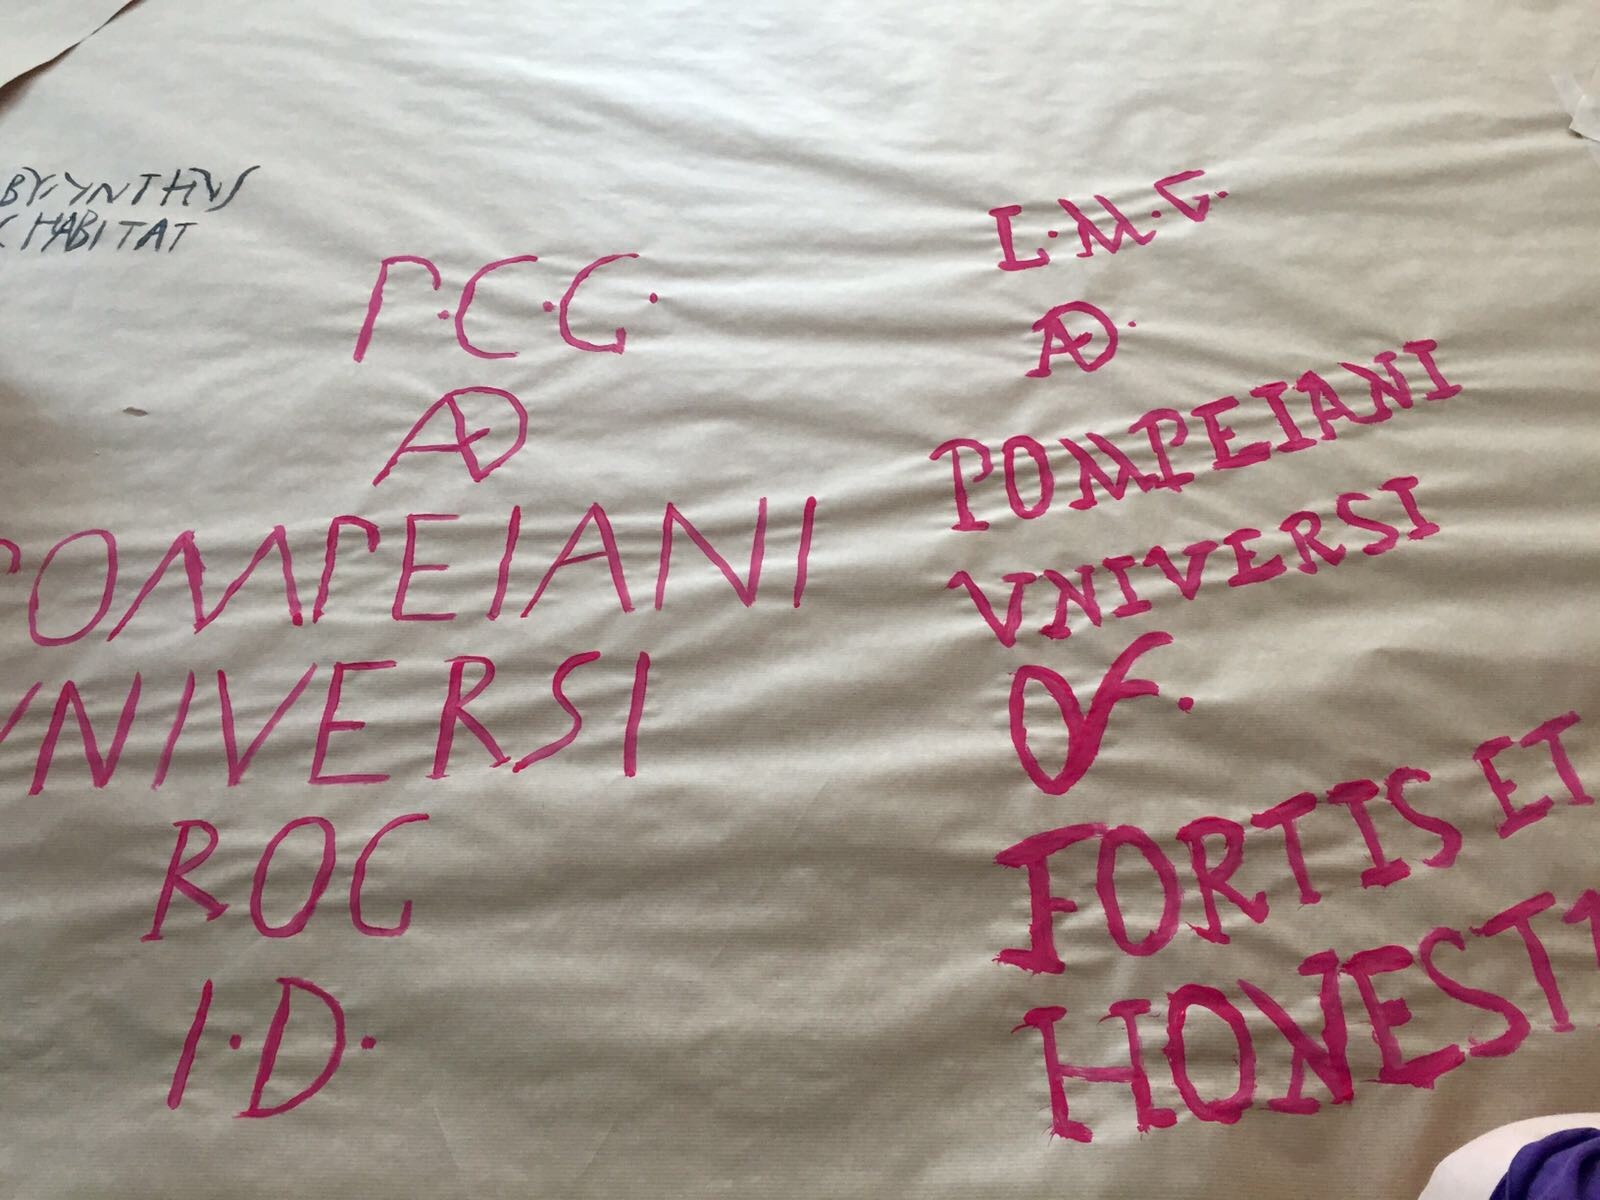 BYRYNTHVS
HABITAT
P·C·G·
AED
POMPEIANI
VNIVERSI
ROG
I·D·
L·M·G·
AED·
POMPEIANI
VNIVERSI
OVF·
FORTIS ET
HONESTI